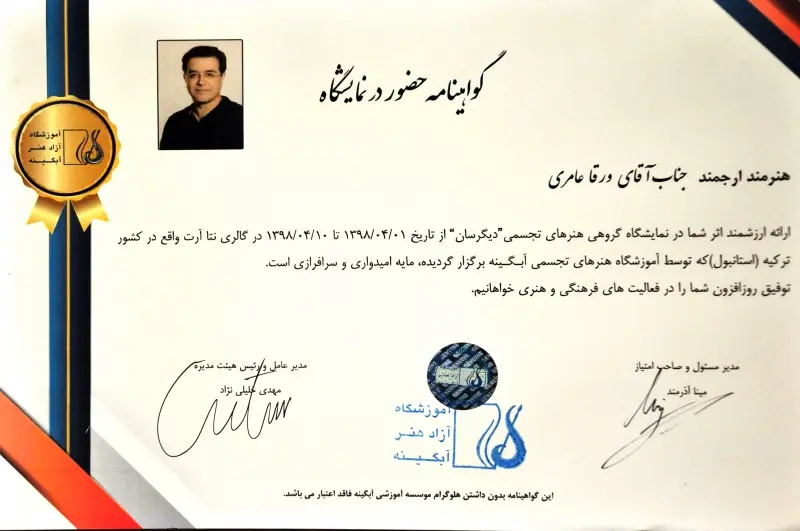 گواهینامه حضور در نمایشگاه
آموزشگاه
آزاد هنر
آبگینه
هنرمند ارجمند جناب آقای ورقا عامری
ارائه ارزشمند اثر شما در نمایشگاه گروهی هنرهای تجسمی"دیگرسان" از تاریخ ۱۳۹۸/۰۴/۰۱ تا ۱۳۹۸/۰۴/۱۰ در گالری نتا آرت واقع در کشور
ترکیه (استانبول)که توسط آموزشگاه هنرهای تجسمی آبگینه برگزار گردیده، مایه امیدواری و سرافرازی است.
توفیق روزافزون شما را در فعالیت های فرهنگی و هنری خواهانیم.
مدیر مسئول و صاحب امتیاز
مینا آذرمند
مدیر عامل و رئیس هیئت مدیره
مهدی خلیلی نژاد
آموزشگاه
آزاد هنر
آبگینه
این گواهینامه بدون داشتن هلوگرام موسسه آموزشی آبگینه فاقد اعتبار می باشد.